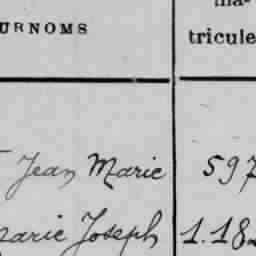 URNOMS
ma-
tricule
Jean Marie 597
Marie Joseph 1.182